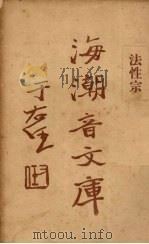 法性宗
海潮音文庫